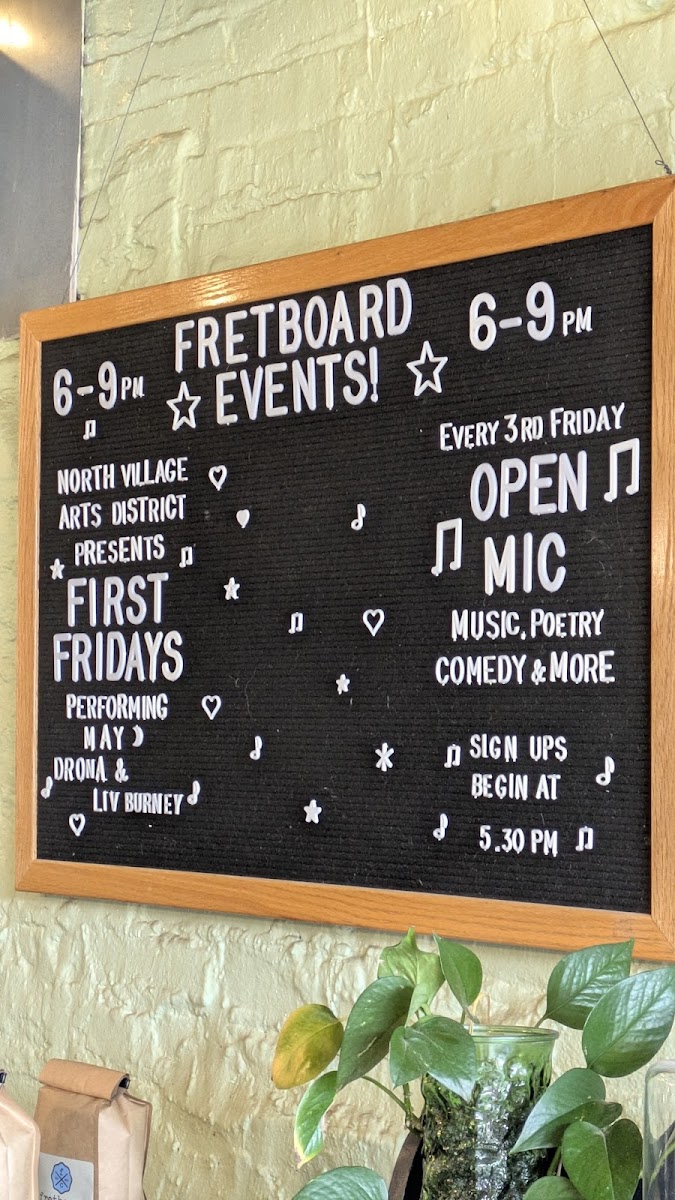 FRETBOARD
EVENTS!
6-9 PM
NORTH VILLAGE
ARTS DISTRICT
PRESENTS
FIRST
FRIDAYS
PERFORMING
MAY
DRONA &
LIV BURNEY
6-9 PM
EVERY 3RD FRIDAY
OPEN
MIC
MUSIC, POETRY
COMEDY & MORE
SIGN UPS
BEGIN AT
5.30 PM